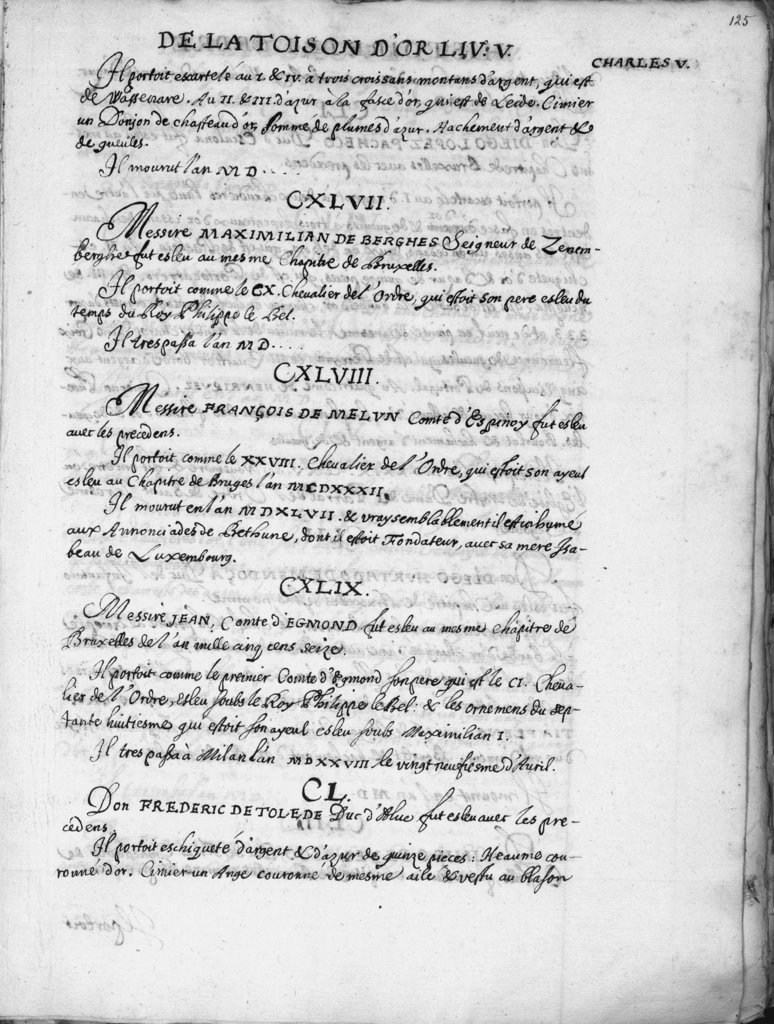 125
DE LA TOISON D'OR LIV: V.
CHARLES V.
Il portoit escartelé au I. & IV. a trois croissans montans d'argent, qui est
de Wassenare. Au II. & III. d'azur à la fasce d'or, qui est de Leide. Cimier
un Donjon de chasteau d'or, sommé de plumes d'azur. Hachement d'argent &
de gueules.
Il mourut l'an M D....
CXLVII.
Messire MAXIMILIAN DE BERGHES Seigneur de Zevem-
berghe fut esleu au mesme Chapitre de Bruxelles.
Il portoit comme le CX. Chevalier de l'Ordre, qui estoit son pere esleu du
temps du Roy Philippe le Bel.
Il trespassa l'an M D....
CXLVIII.
Messire FRANÇOIS DE MELUN Comte d'Espinoy fut esleu
avec les precedens.
Il portoit comme le XXVIII. Chevalier de l'Ordre, qui estoit son ayeul
esleu au Chapitre de Bruges l'an MCDXXXII.
Il mourut en l'an MDXLVII. & vraysemblablement il est inhumé
aux Annonciades de Bethune, dont il estoit Fondateur, avec sa mere Isa-
beau de Luxembourg.
CXLIX.
Messire JEAN, Comte d'EGMOND fut esleu au mesme chapitre de
Bruxelles de l'an mille cinq cens seize.
Il portoit comme le premier Comte d'Egmond son pere qui est le CI. Cheva-
lier de l'Ordre, esleu soubs le Roy Philippe le Bel: & les ornemens du sep-
tante huitiesme qui estoit son ayeul esleu soubs Maximilian I.
Il trespassa à Milan l'an MDXXVIII le vingt neufiesme d'Avril.
CL.
Don FREDERIC DE TOLEDE Duc d'Alve fut esleu avec les pre-
cedens.
Il portoit eschiqueté d'argent & d'azur de quinze pieces: Heaume cou-
ronné d'or. Cimier un Ange couronné de mesme ailé & vestu au blason